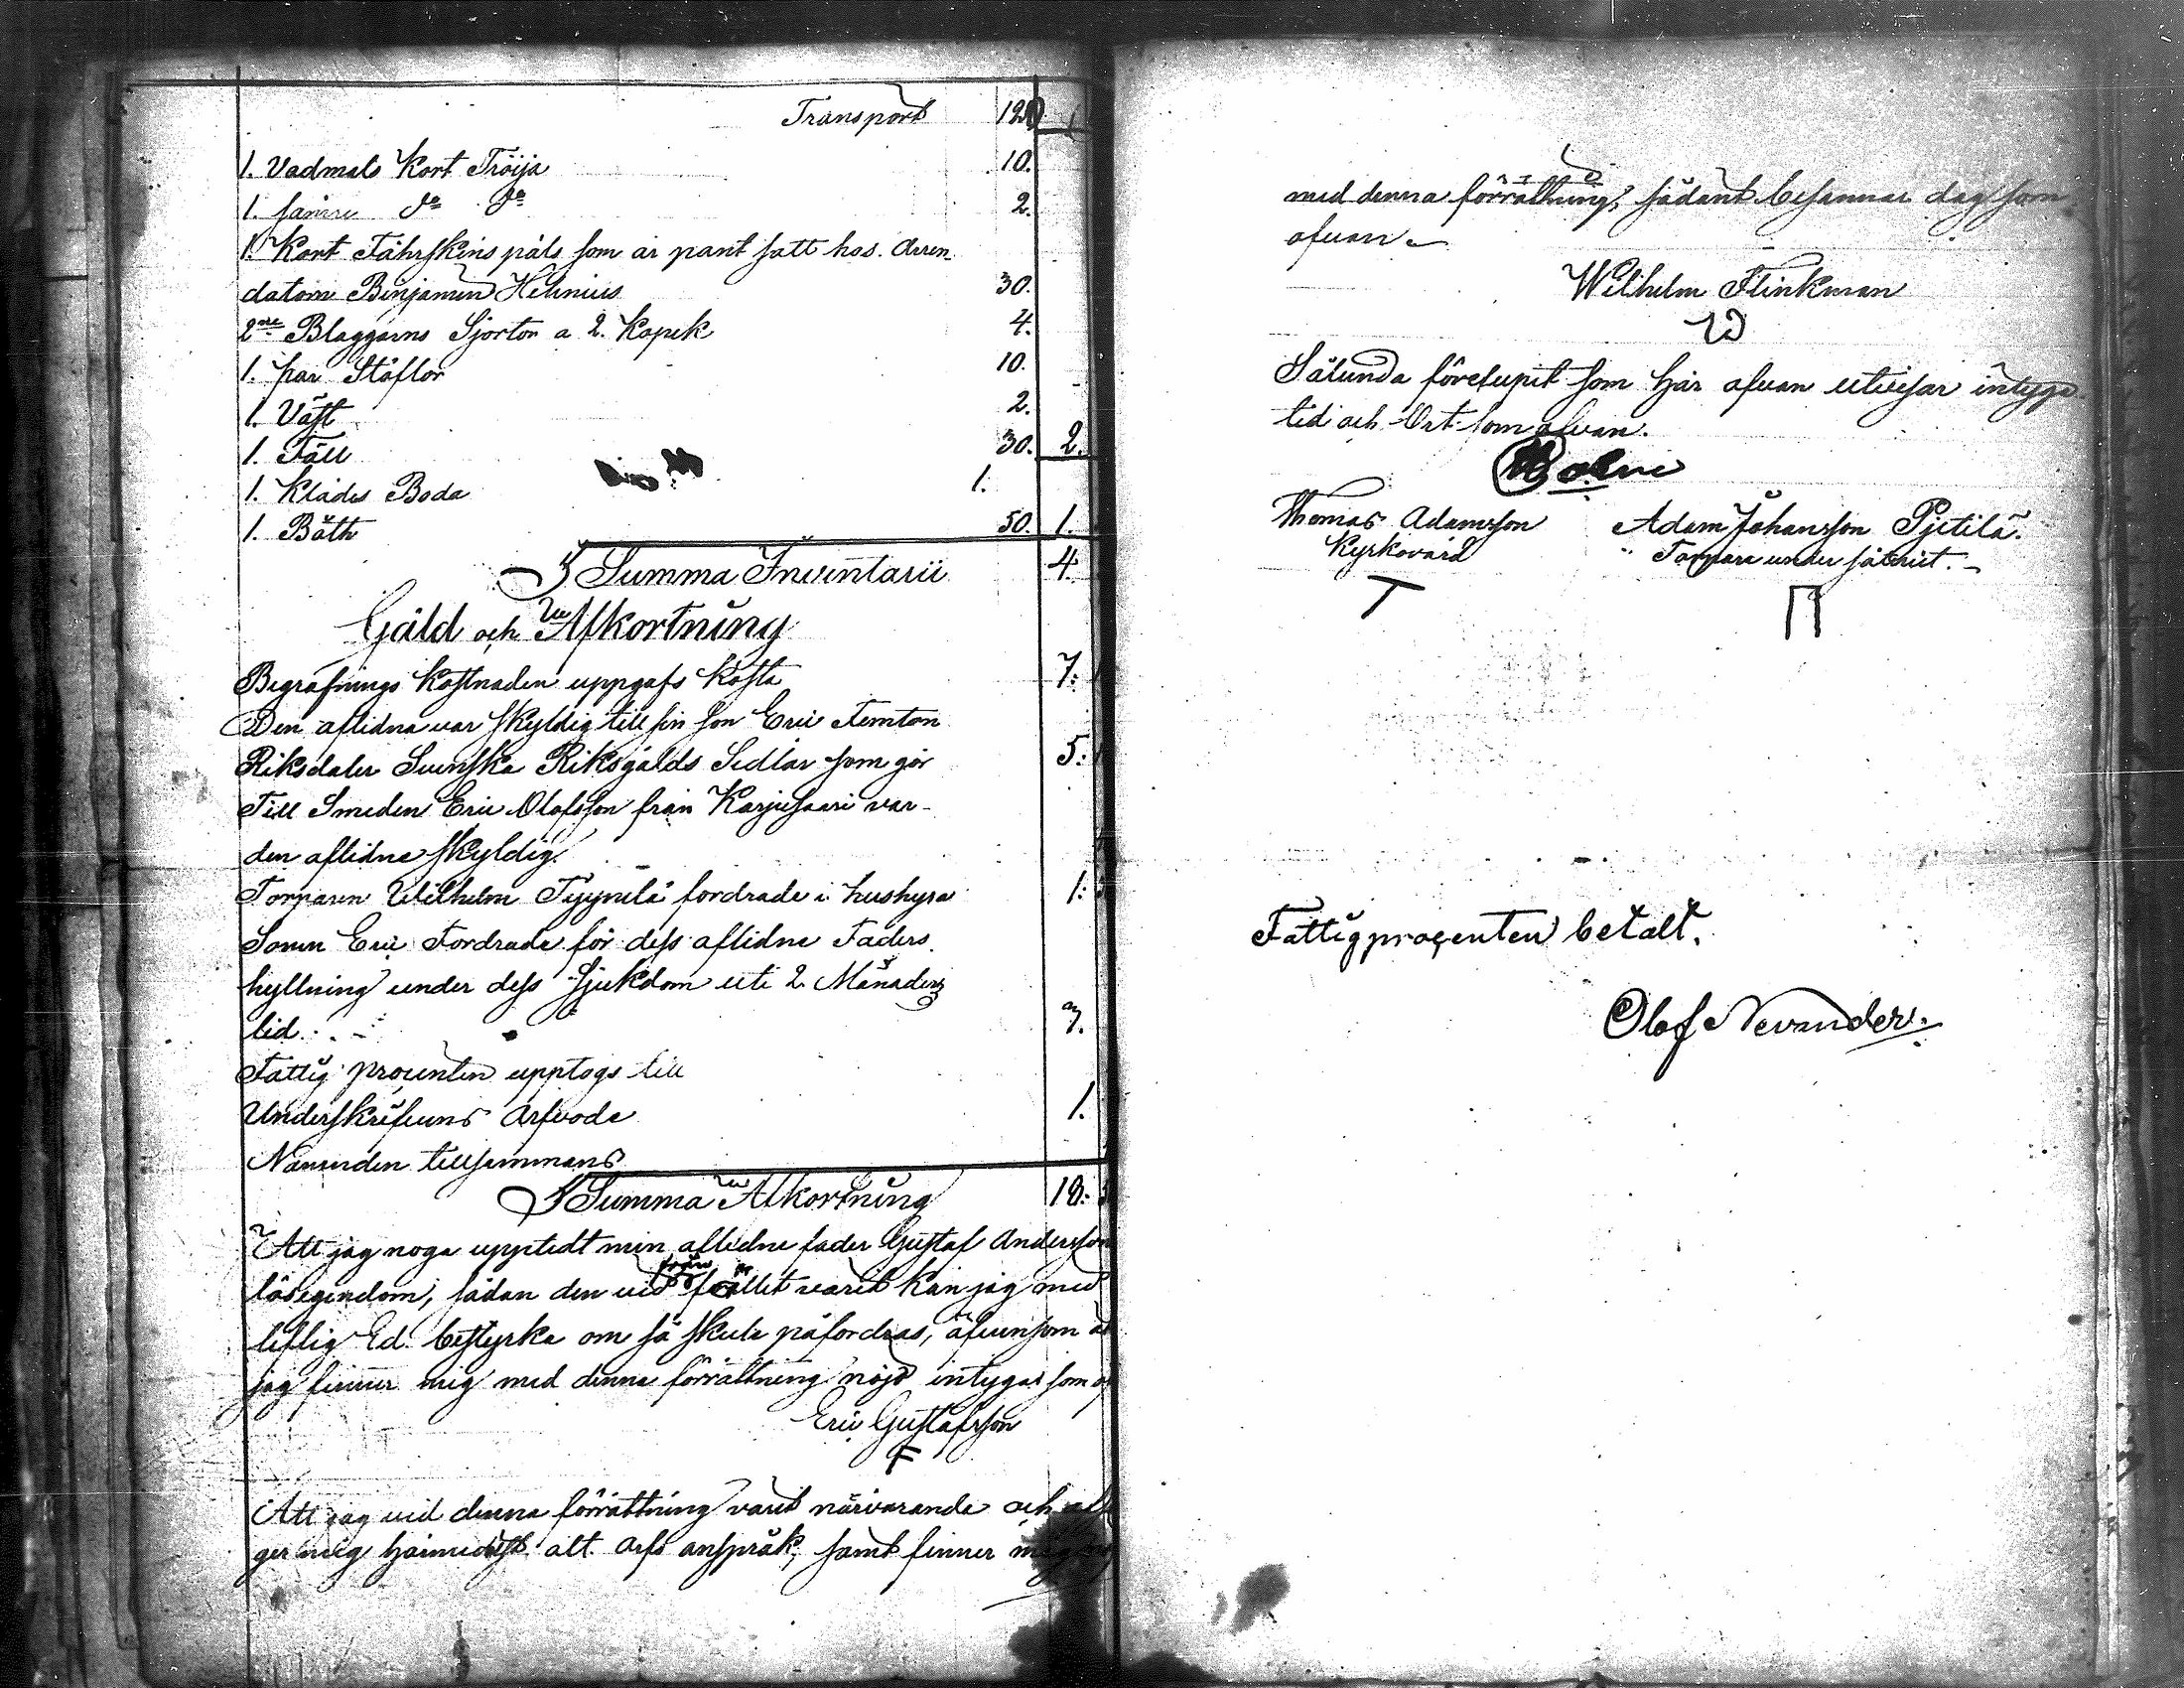 Transport 120 1
1. Vadmals Kort Tröija 10.
1. sämre do do 2.
1. Kort Fåhrskins päls som är pant satt hos Arren
datorn Benjamin Helinius 30.
2ne Blaggarns Sjortor a 2. Kopek 4.
1. par Stöflor 10.
1. Väst 2.
1. Fäll 30. 2.
1. Klädes Boda 1.
1. Båth 50. 1.
Summa Inventarii 4.
Gäld och Afkortning
Begrafnings Kostnaden uppgafs Kosta 7.
Den aflidna var skyldig till sin son Eric Femton
Riksdaler Svenska Riksgälds Sedlar som gör 5.
Till Smeden Eric Olofsson från Karjusaari var
den aflidne skyldig.
Torparen Wilhelm Tyynelä fordrade i hushyra 1:
Sonen Eric Fordrade för dess aflidne Faders
hyllning under dess Sjukdom uti 2. Månaders
tid. 3.
Fattig procenten upptogs till
Underskrifvens Arfvode 1.
Nämnden tillsammans
Summa Afkortning 18:
Att jag noga upptedt min aflidne fader Gustaf Andersson
lösegendom, sådan den vid från fället varit kan jag med
liflig Ed bestyrka om så skule påfordras, äfvensom
jag finner mig med denna förrättning nöjd intygas som
Eric Gustafsson
F
Att jag vid denna förrättning varit närvarande och
ger mig härmedelst alt arfs anspråk, samt finner mig
med denna förrättning, sådant besannar dag som
ofvan
Wilhelm Flinkman
W
Sålunda förelupit som här ofvan utvisar intyga
tid och Ort som ofvan.
Thomas Adamsson Adam Johansson Pjetilä.
Kyrkovärd Torpare under säteriet.
T Π
Fattigprocenten betalt.
Olof Nevander.